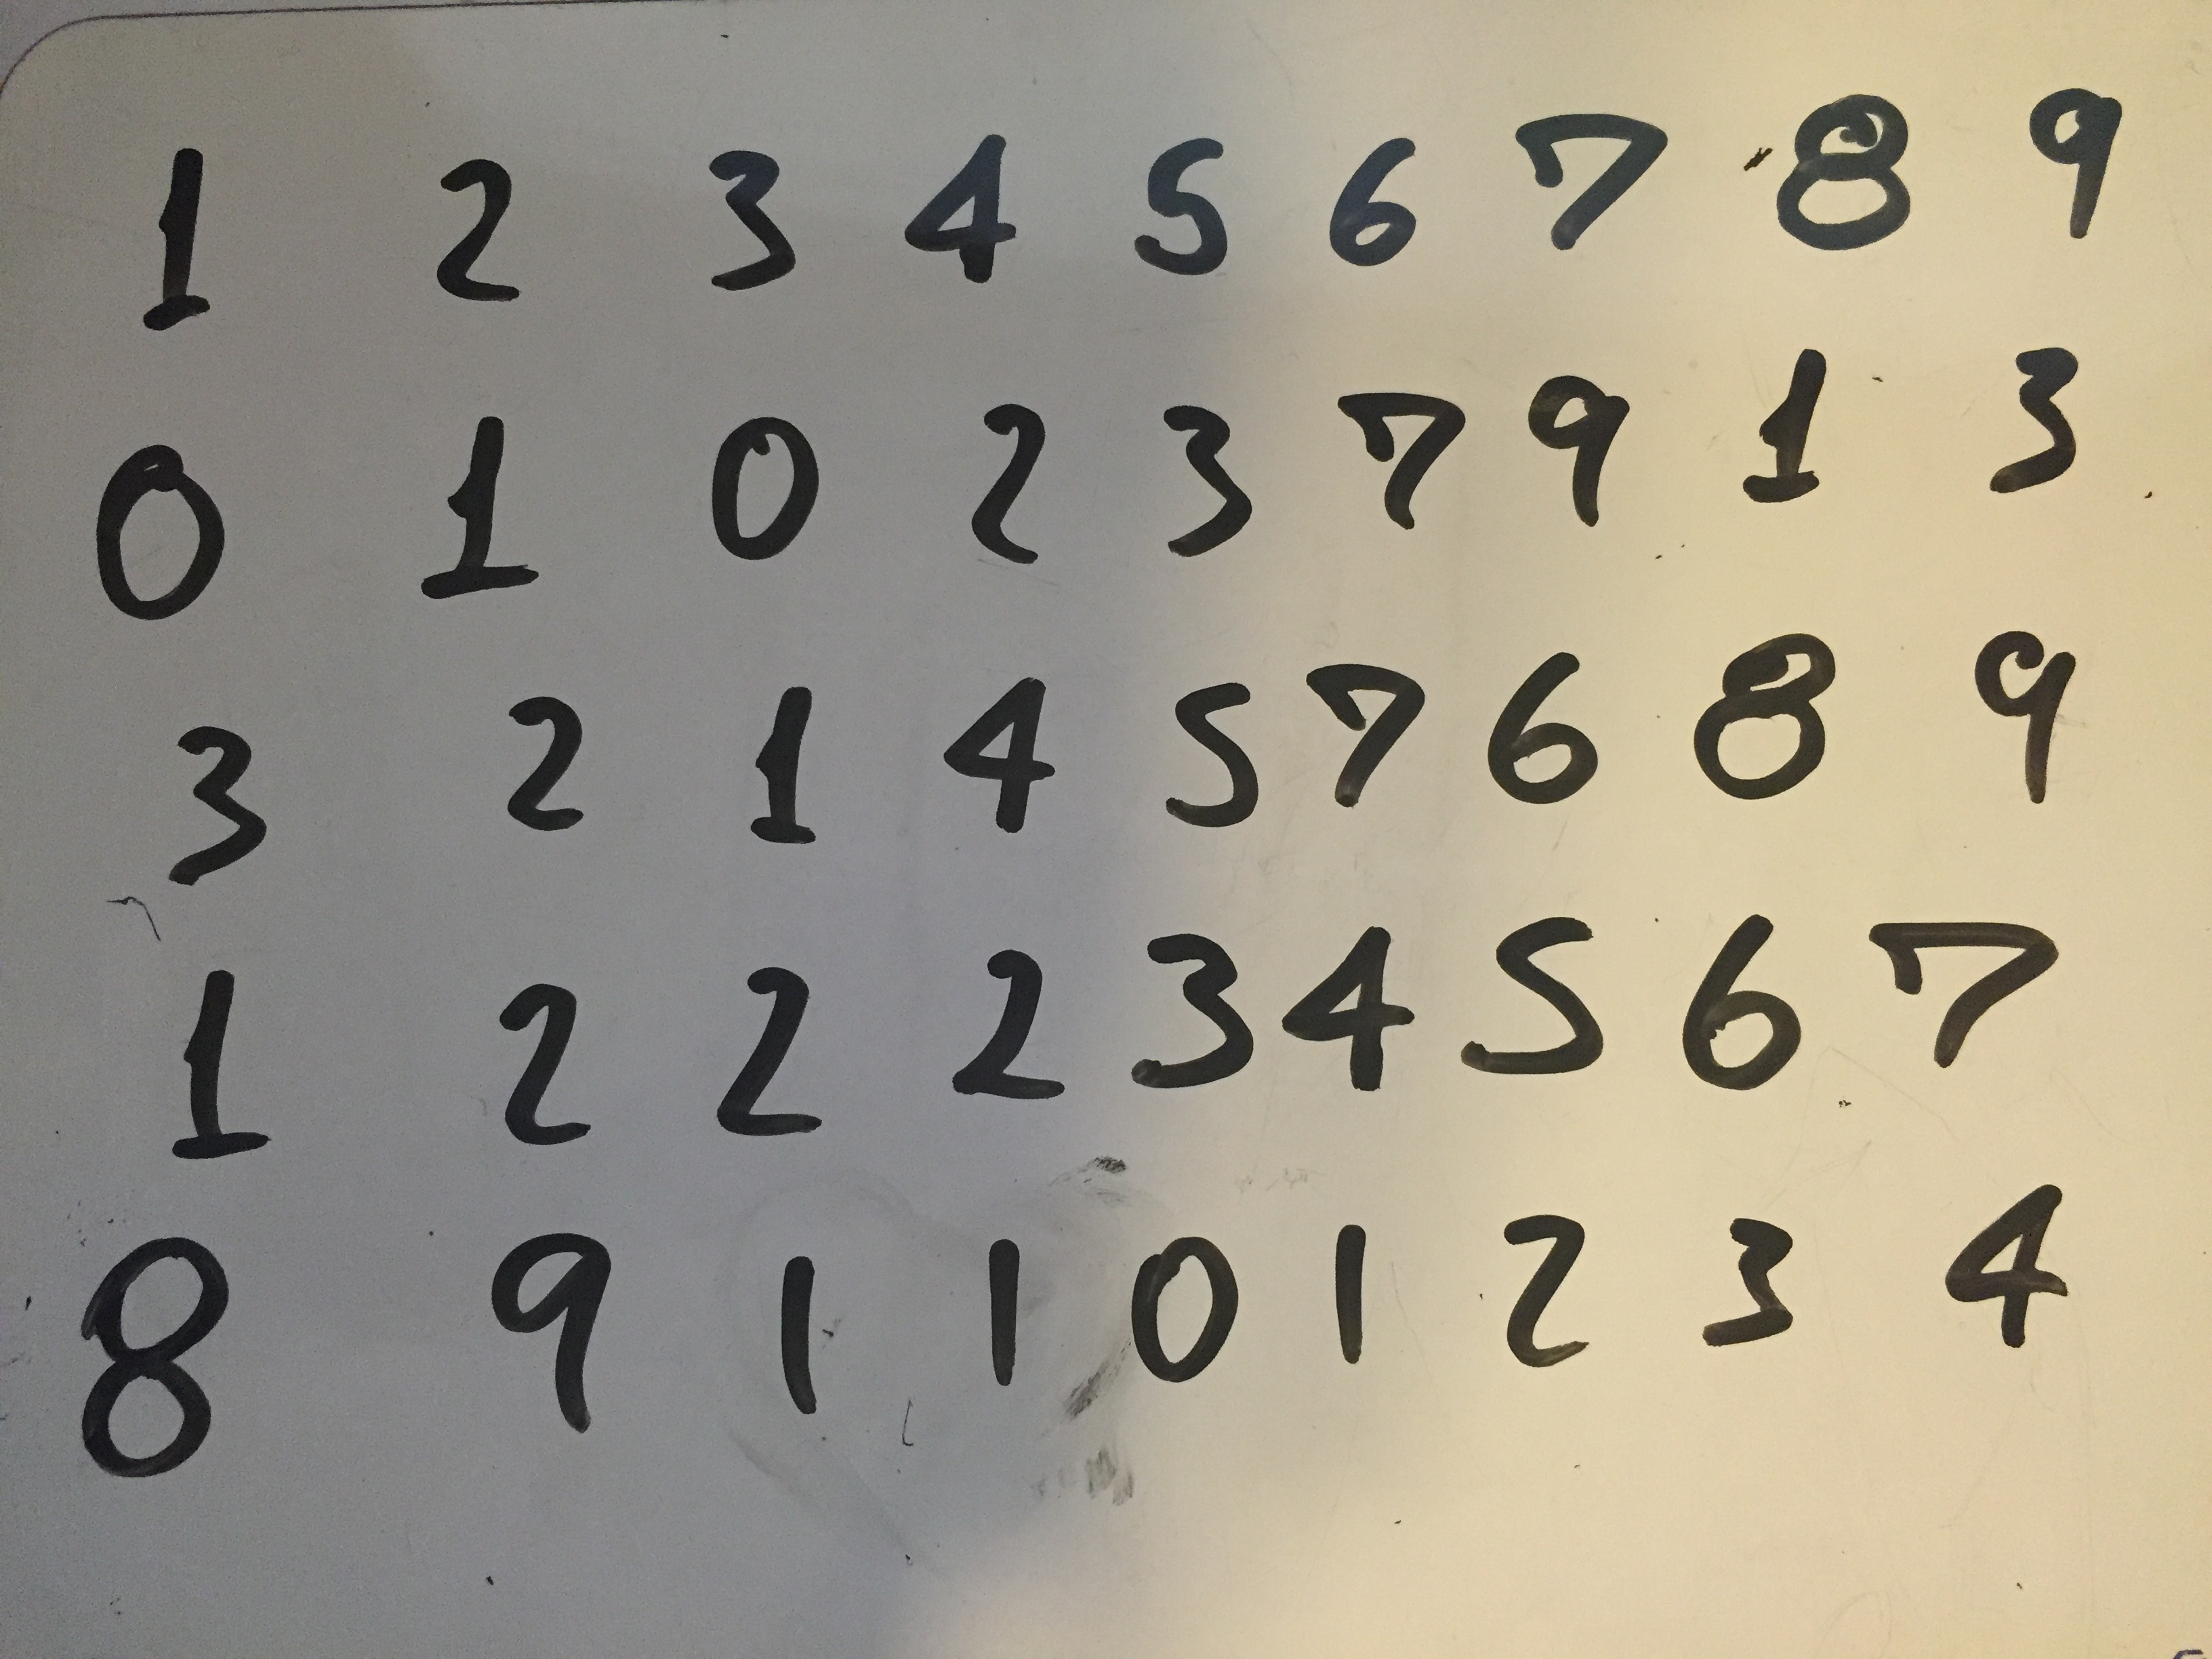 1 2 3 4 5 6 7 8 9
0 1 0 2 3 7 9 1 3
3 2 1 4 5 7 6 8 9
1 2 2 2 3 4 5 6 7
8 9 1 1 0 1 2 3 4